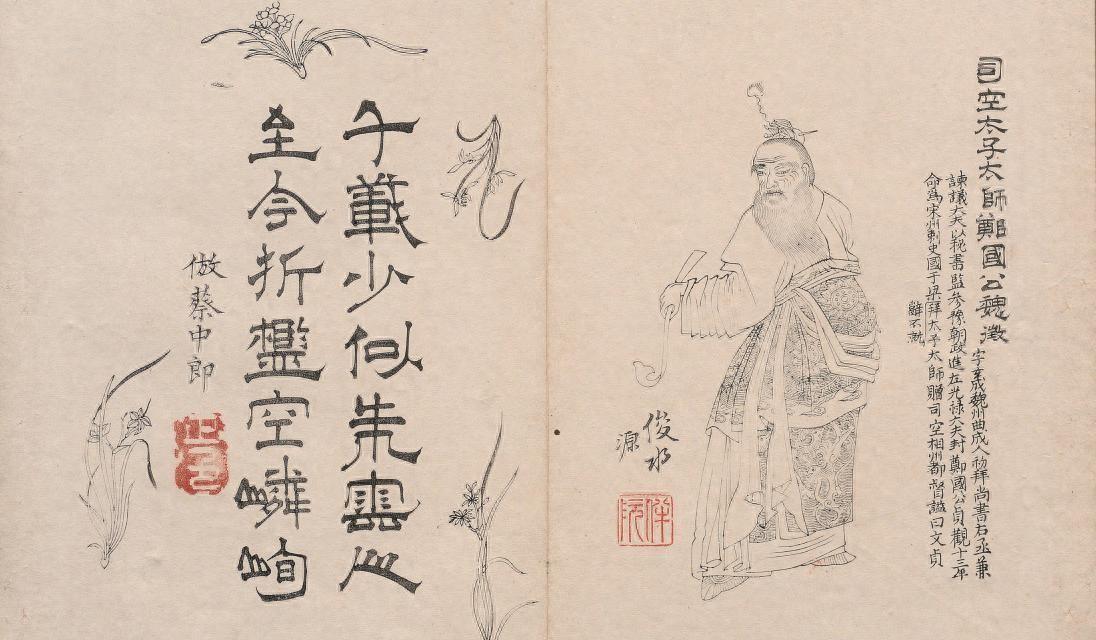 司空太子太師鄭國公魏徵
字玄成魏州曲成人初拜尚書右丞兼
諫議大夫以秘書監參豫朝政進左光祿大夫封鄭國公貞觀十三年
命爲宋州刺史國于梁拜太子太師贈司空相州都督諡曰文貞
辭不就
俊水
源
伴阮
千載少似朱雲人
至今折檻空嶙峋
倣蔡中郎